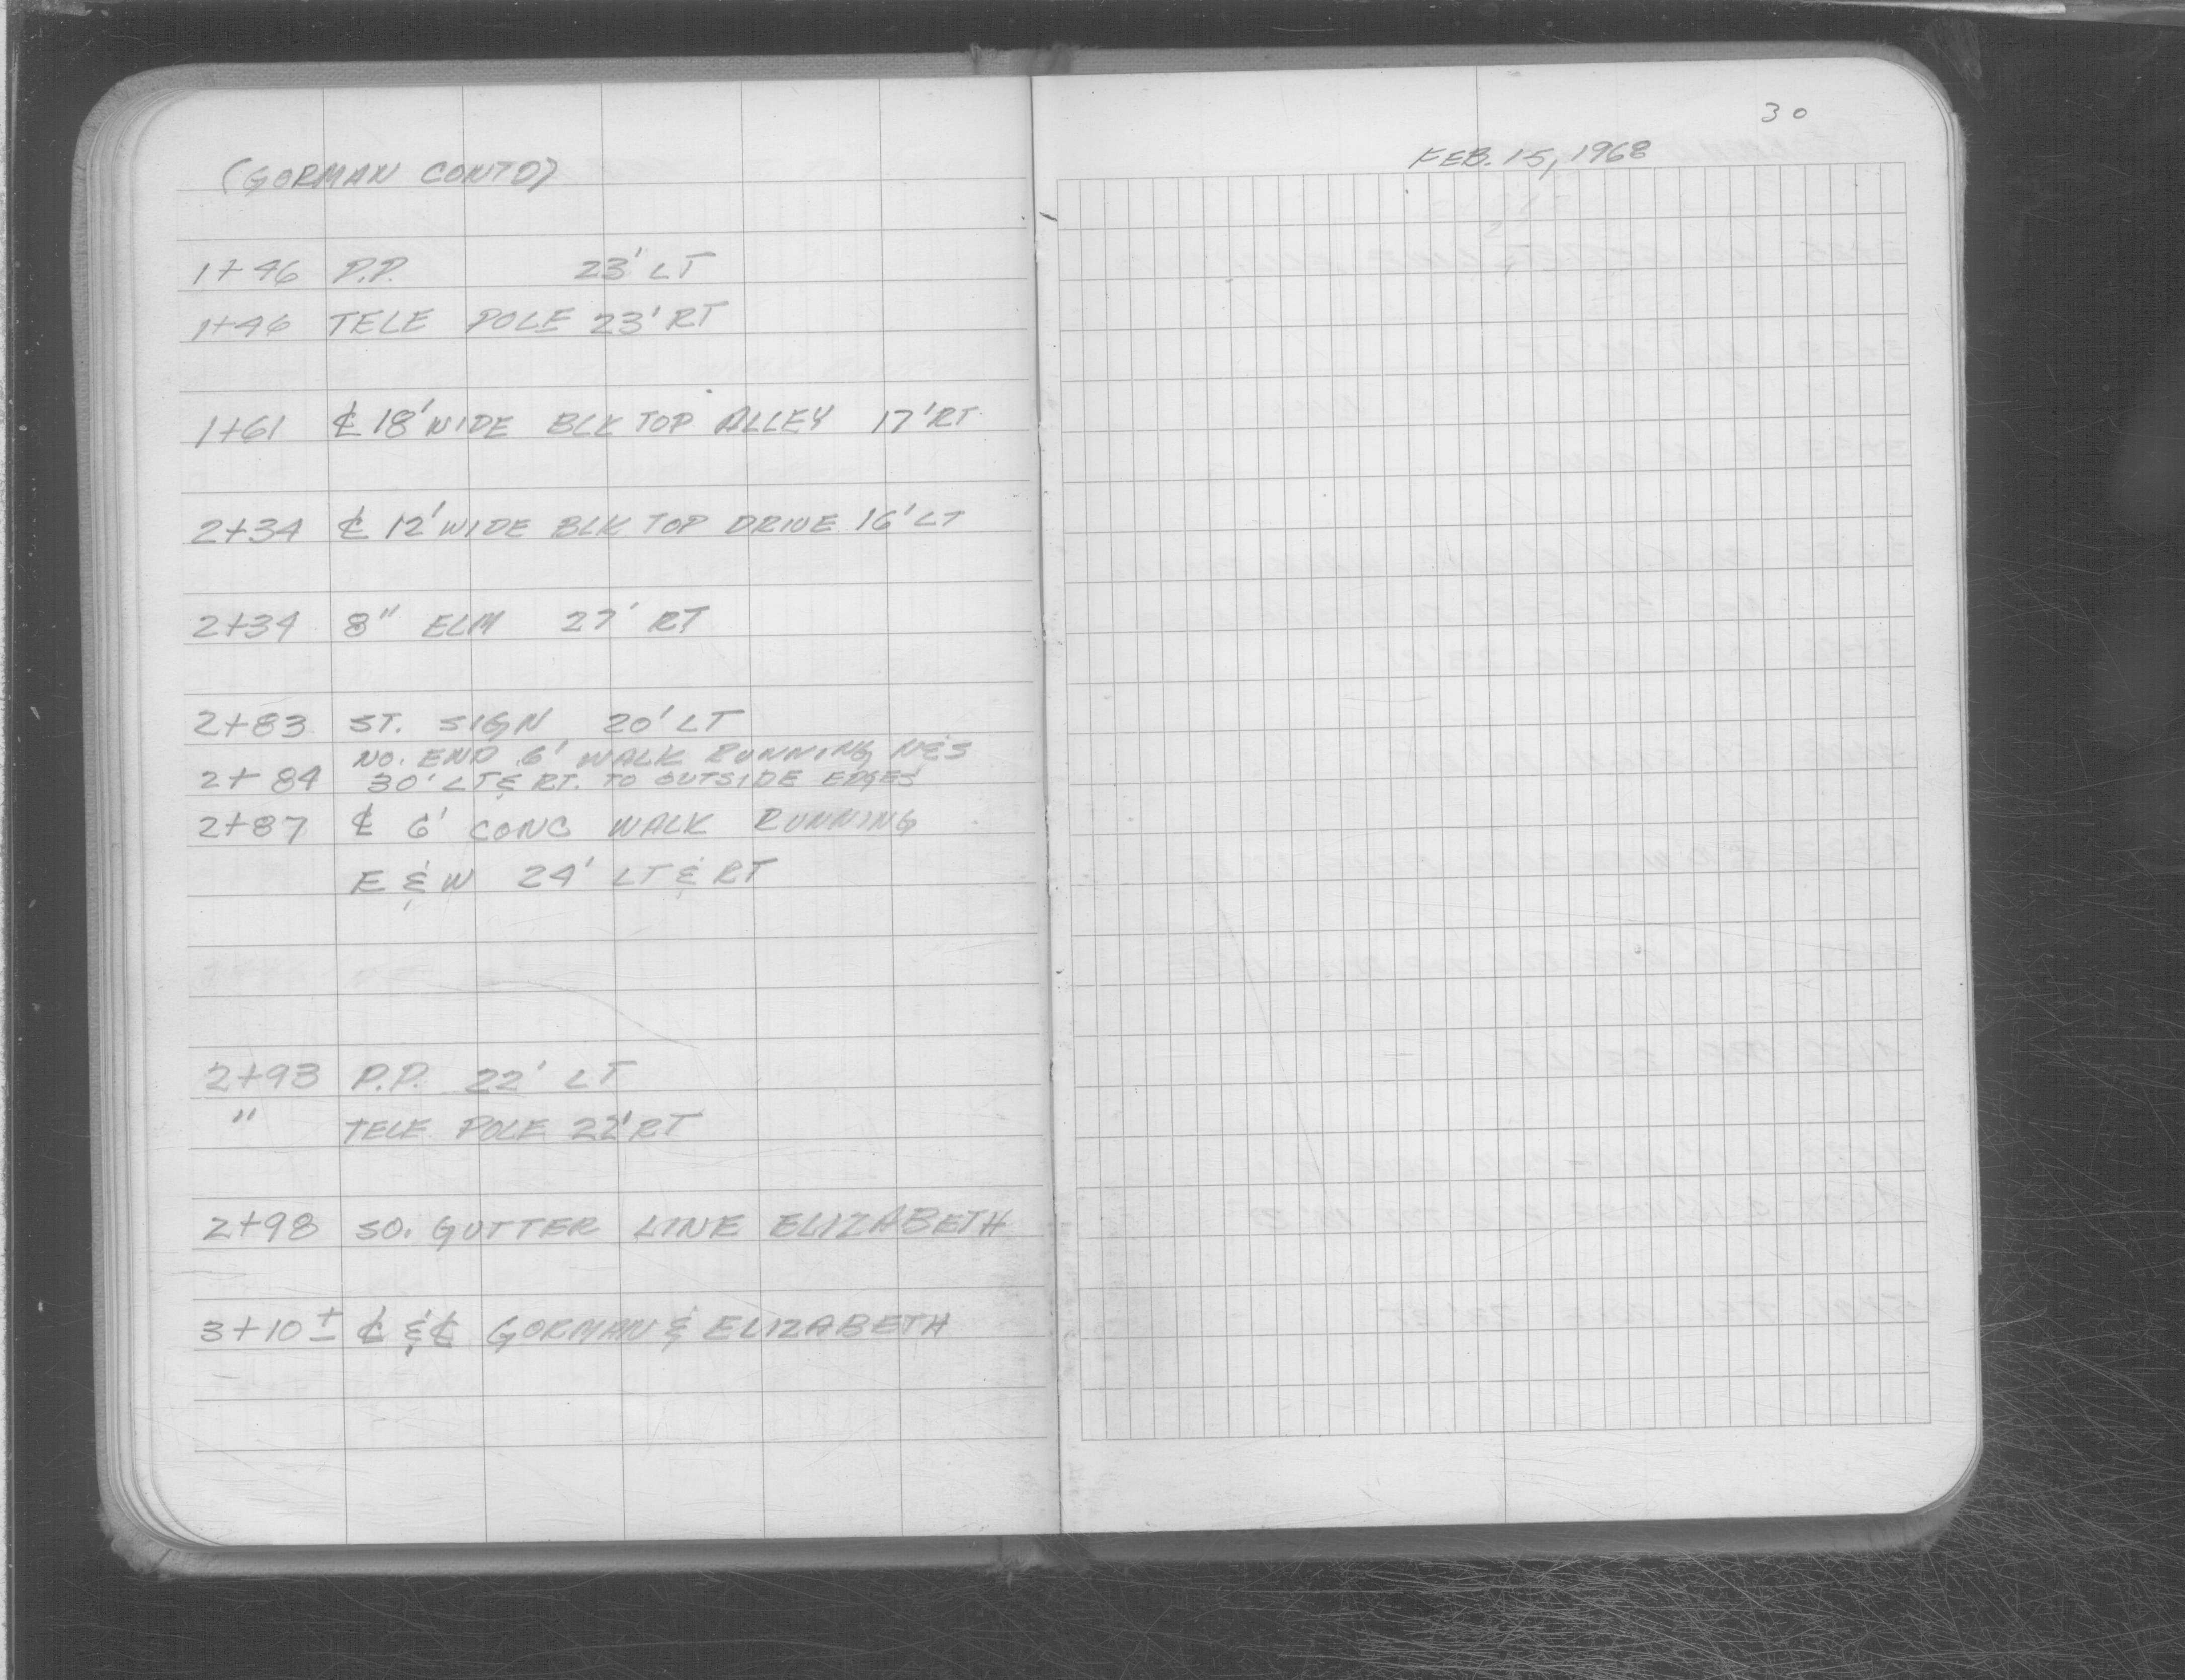 (GORMAN CONT'D)
1+46 P.P. 23' LT
1+46 TELE POLE 23' RT
1+61 ℄ 18' WIDE BLK TOP ALLEY 17' RT
2+34 ℄ 12' WIDE BLK TOP DRIVE 16' LT
2+34 8" ELM 27' RT
2+83 ST. SIGN 20' LT
NO. END 6' WALK RUNNING N&S
2+84 30' LT & RT. TO OUTSIDE EDGES
2+87 ℄ 6' CONC WALK RUNNING
E & W 24' LT & RT
2+93 P.P. 22' LT
" TELE POLE 22' RT
2+98 SO. GUTTER LINE ELIZABETH
3+10± ℄ & ℄ GORMAN & ELIZABETH
30
FEB. 15, 1968